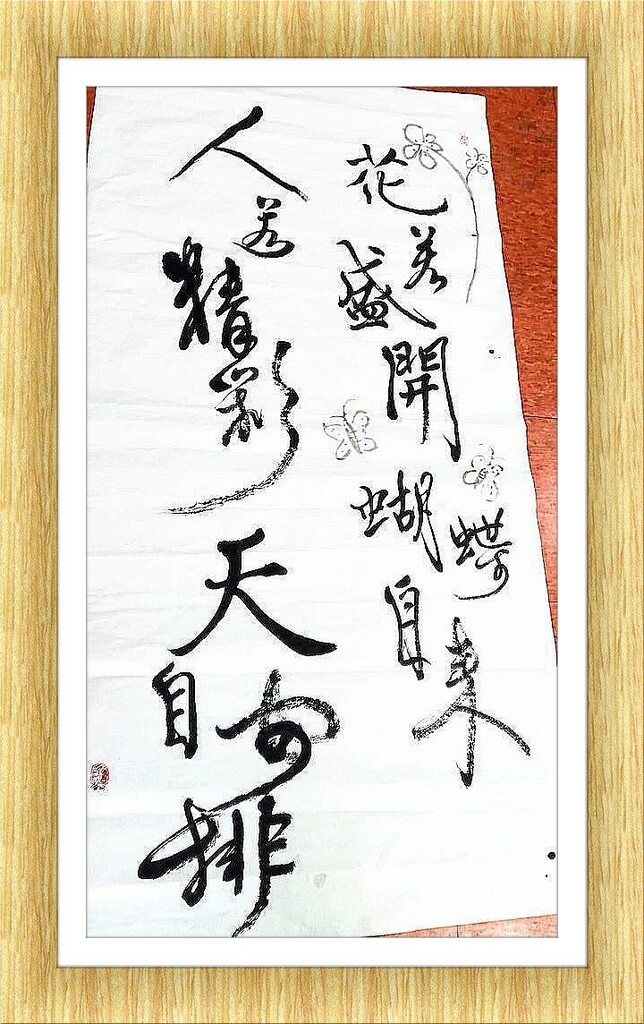 花若盛開蝴蝶自来
人若精彩天自安排